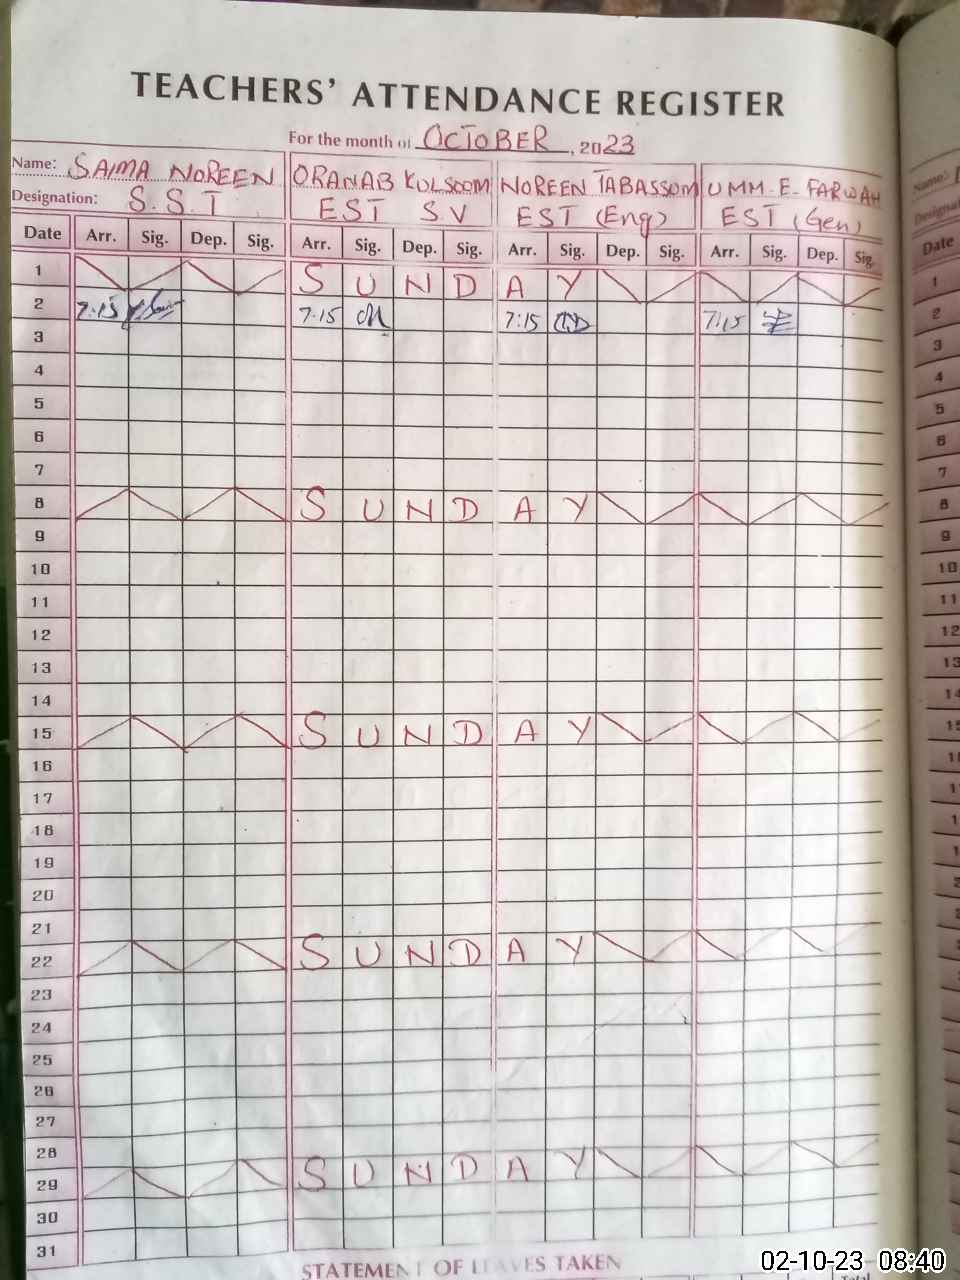 TEACHERS' ATTENDANCE REGISTER
For the month of OCTOBER, 2023
Name: SAIMA NOREEN ORANAB KULSOOM NOREEN TABASSOM UMM-E-FARWAH
Designation: S.S.T EST S.V EST (Eng) EST (Gen)
Date Arr. Sig. Dep. Sig. Arr. Sig. Dep. Sig. Arr. Sig. Dep. Sig. Arr. Sig. Dep. Sig.
1 SUNDAY
2 7:15 7:15 7:15 7:15
3
4
5
6
7
8 SUNDAY
9
10
11
12
13
14
15 SUNDAY
16
17
18
19
20
21
22 SUNDAY
23
24
25
26
27
28
29 SUNDAY
30
31
STATEMENT OF LEAVES TAKEN
02-10-23 08:40
Name:
Date
1
2
3
4
5
6
7
8
9
10
11
12
13
14